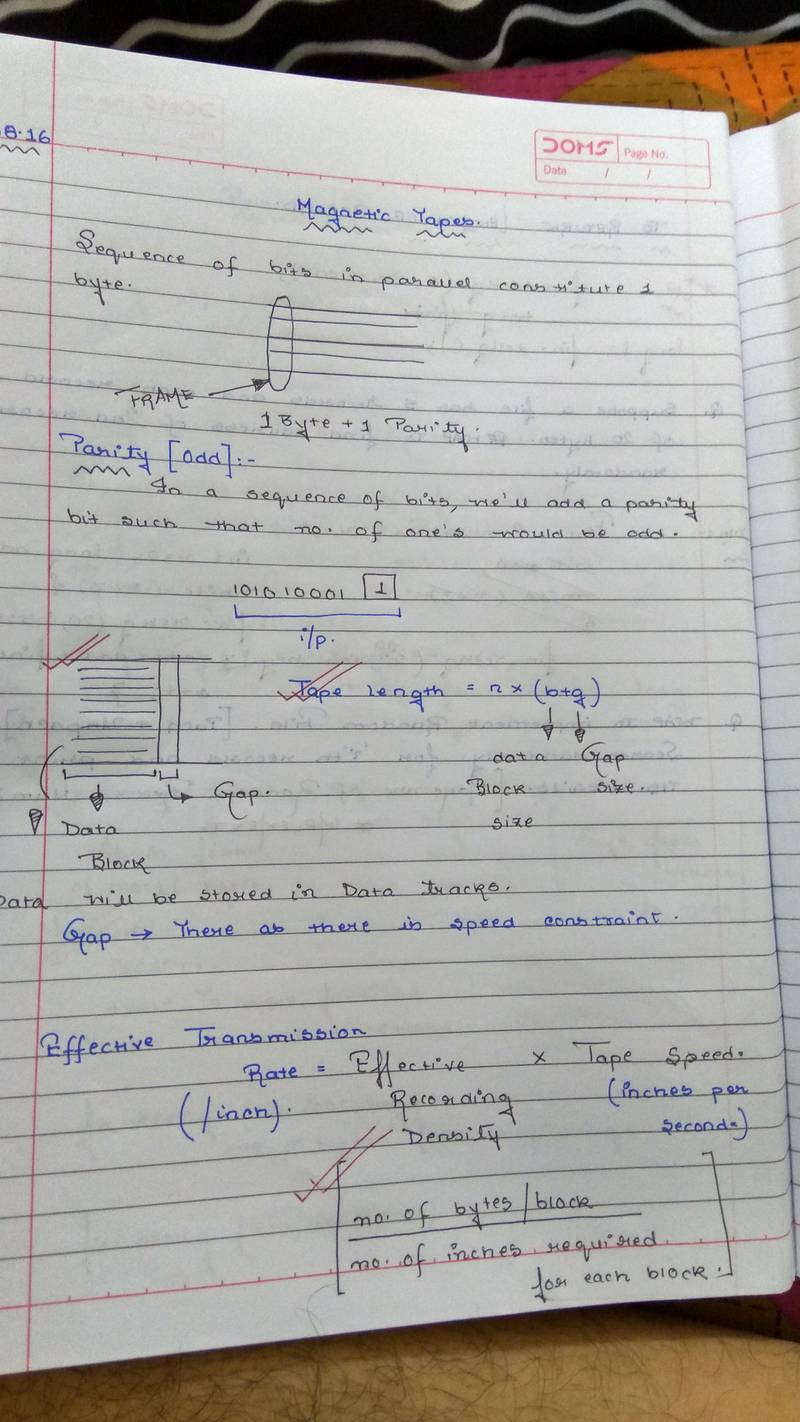 8.16
DOMS Page No.
Date / /
Magnetic Tapes.
Sequence of bits in parallel constiture 1
byte.
FRAME
1 Byte + 1 Parity.
Parity [Odd]:-
In a sequence of bits, we'll add a parity
bit such that no. of one's would be odd.
101010001 1
i/p.
Tape Length = n × (b+g)
data Gap
Block size.
size
Gap.
Data
Block
Data will be stored in Data tracks.
Gap → There as there is speed constraint.
Effective Transmission
Rate = Effective × Tape Speed.
(/inch). Recording (inches per
Density second.)
no. of bytes/block
no. of inches required
for each block.